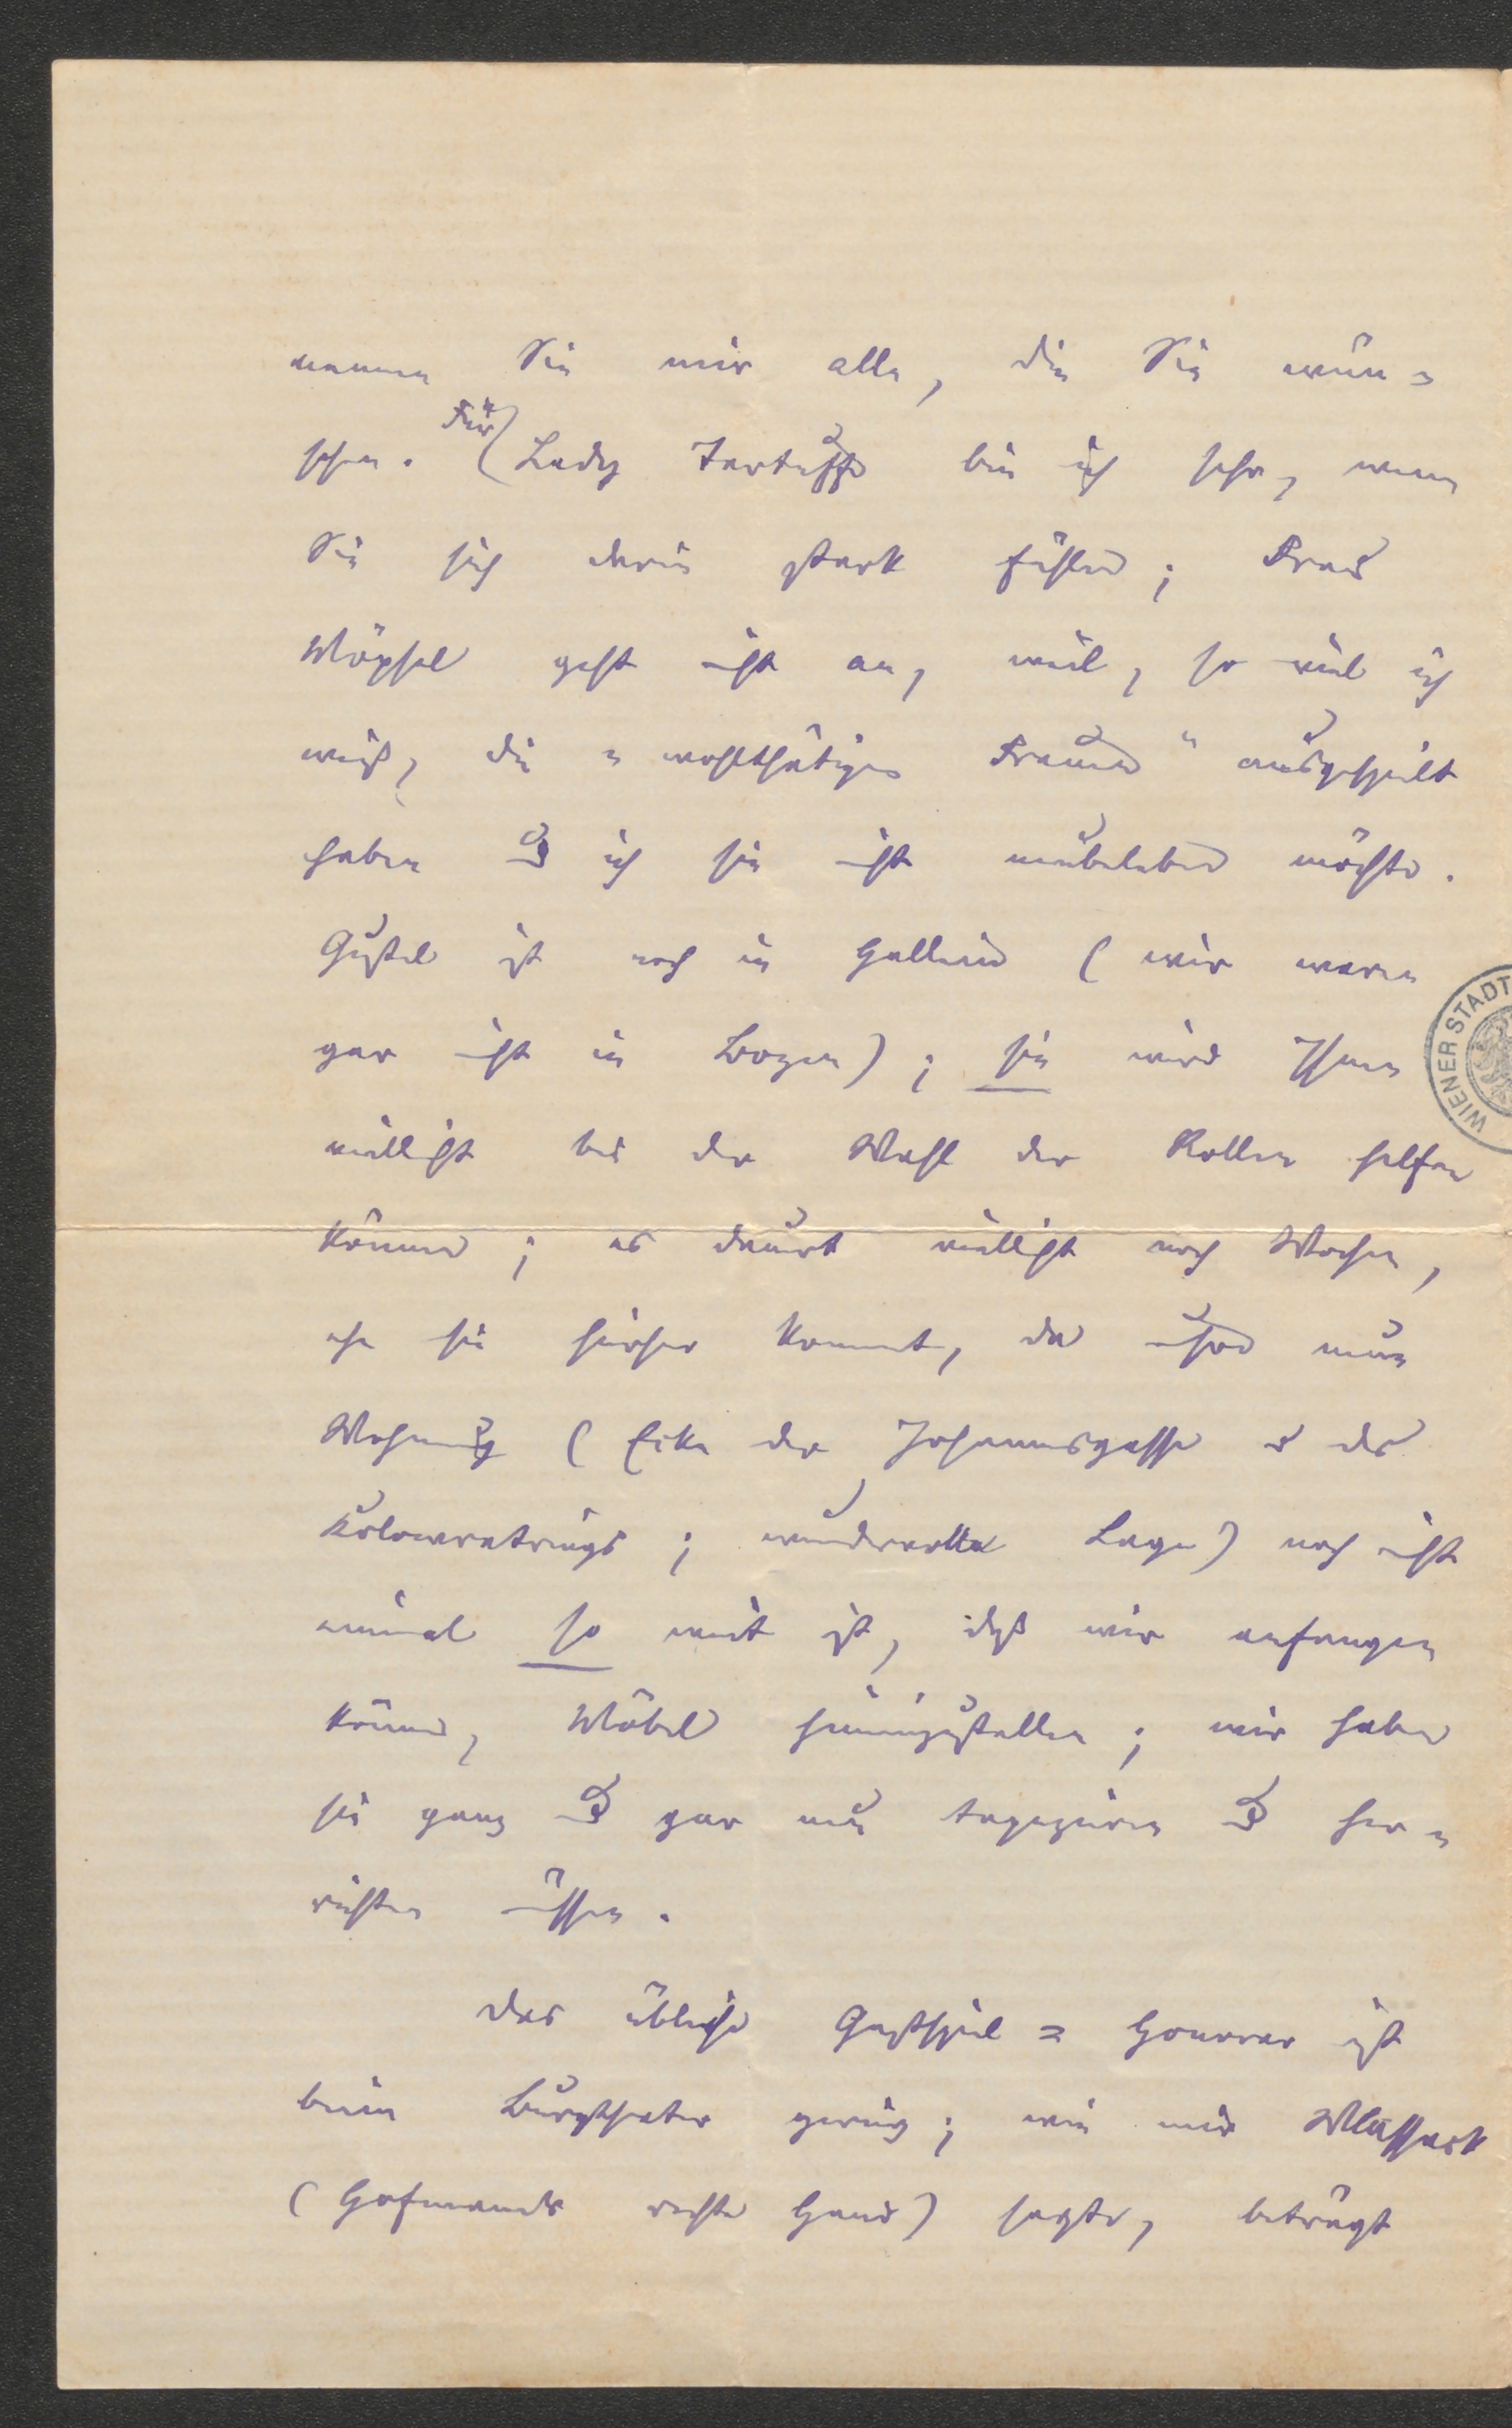 nennen Sie mir alle, die Sie wün=
schen. Für Lady Tartuffe bin ich sehr, wenn
Sie sich darin stark fühlen; Frau
Möpsel geht nicht an, weil, so viel ich
weiß, die „wohlthätigen Frauen“ ausgespielt
haben u ich sie nicht neubeleben möchte.
Gustel ist noch in Hallein (wir waren
gar nicht in Bozen); sie wird Ihnen
vielleicht bei der Wahl der Rollen helfen
können; es dauert vielleicht noch Wochen,
ehe sie hierher kommt, da unsre neue
Wohnung (Ecke der Johannesgasse u des
Kolowratrings; wundervolle Lage) noch nicht
einmal so weit ist, daß wir anfangen
können, Möbel hineinzustellen; wir haben
sie ganz u gar neu tapezieren u her=
richten müssen.
Das übliche Gastspiel=Honorar ist
beim Burgtheater gering; wie mir Wlassack
(Hofmanns rechte Hand) sagte, beträgt
WIENER STADT